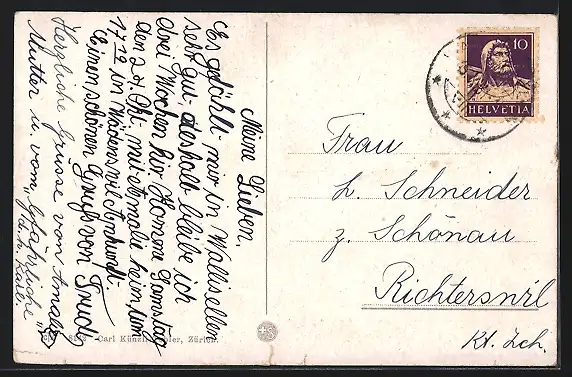 Meine Lieben.
Es gefällt mir in Wallisellen
sehr gut, deshalb bleibe ich
drei Wochen hier. Komme Samstag
den 24. Okt. mit Amalie heim um
17 19 in Wädenswil
Einen schönen Gruß von Trudi
Herzliche Grüsse von Amalie
Mutter u. vom
10
HELVETIA
Frau
h. Schneider
z. Schönau
Richterswil
Kt. Zch.
Carl Künzli, Zürich.